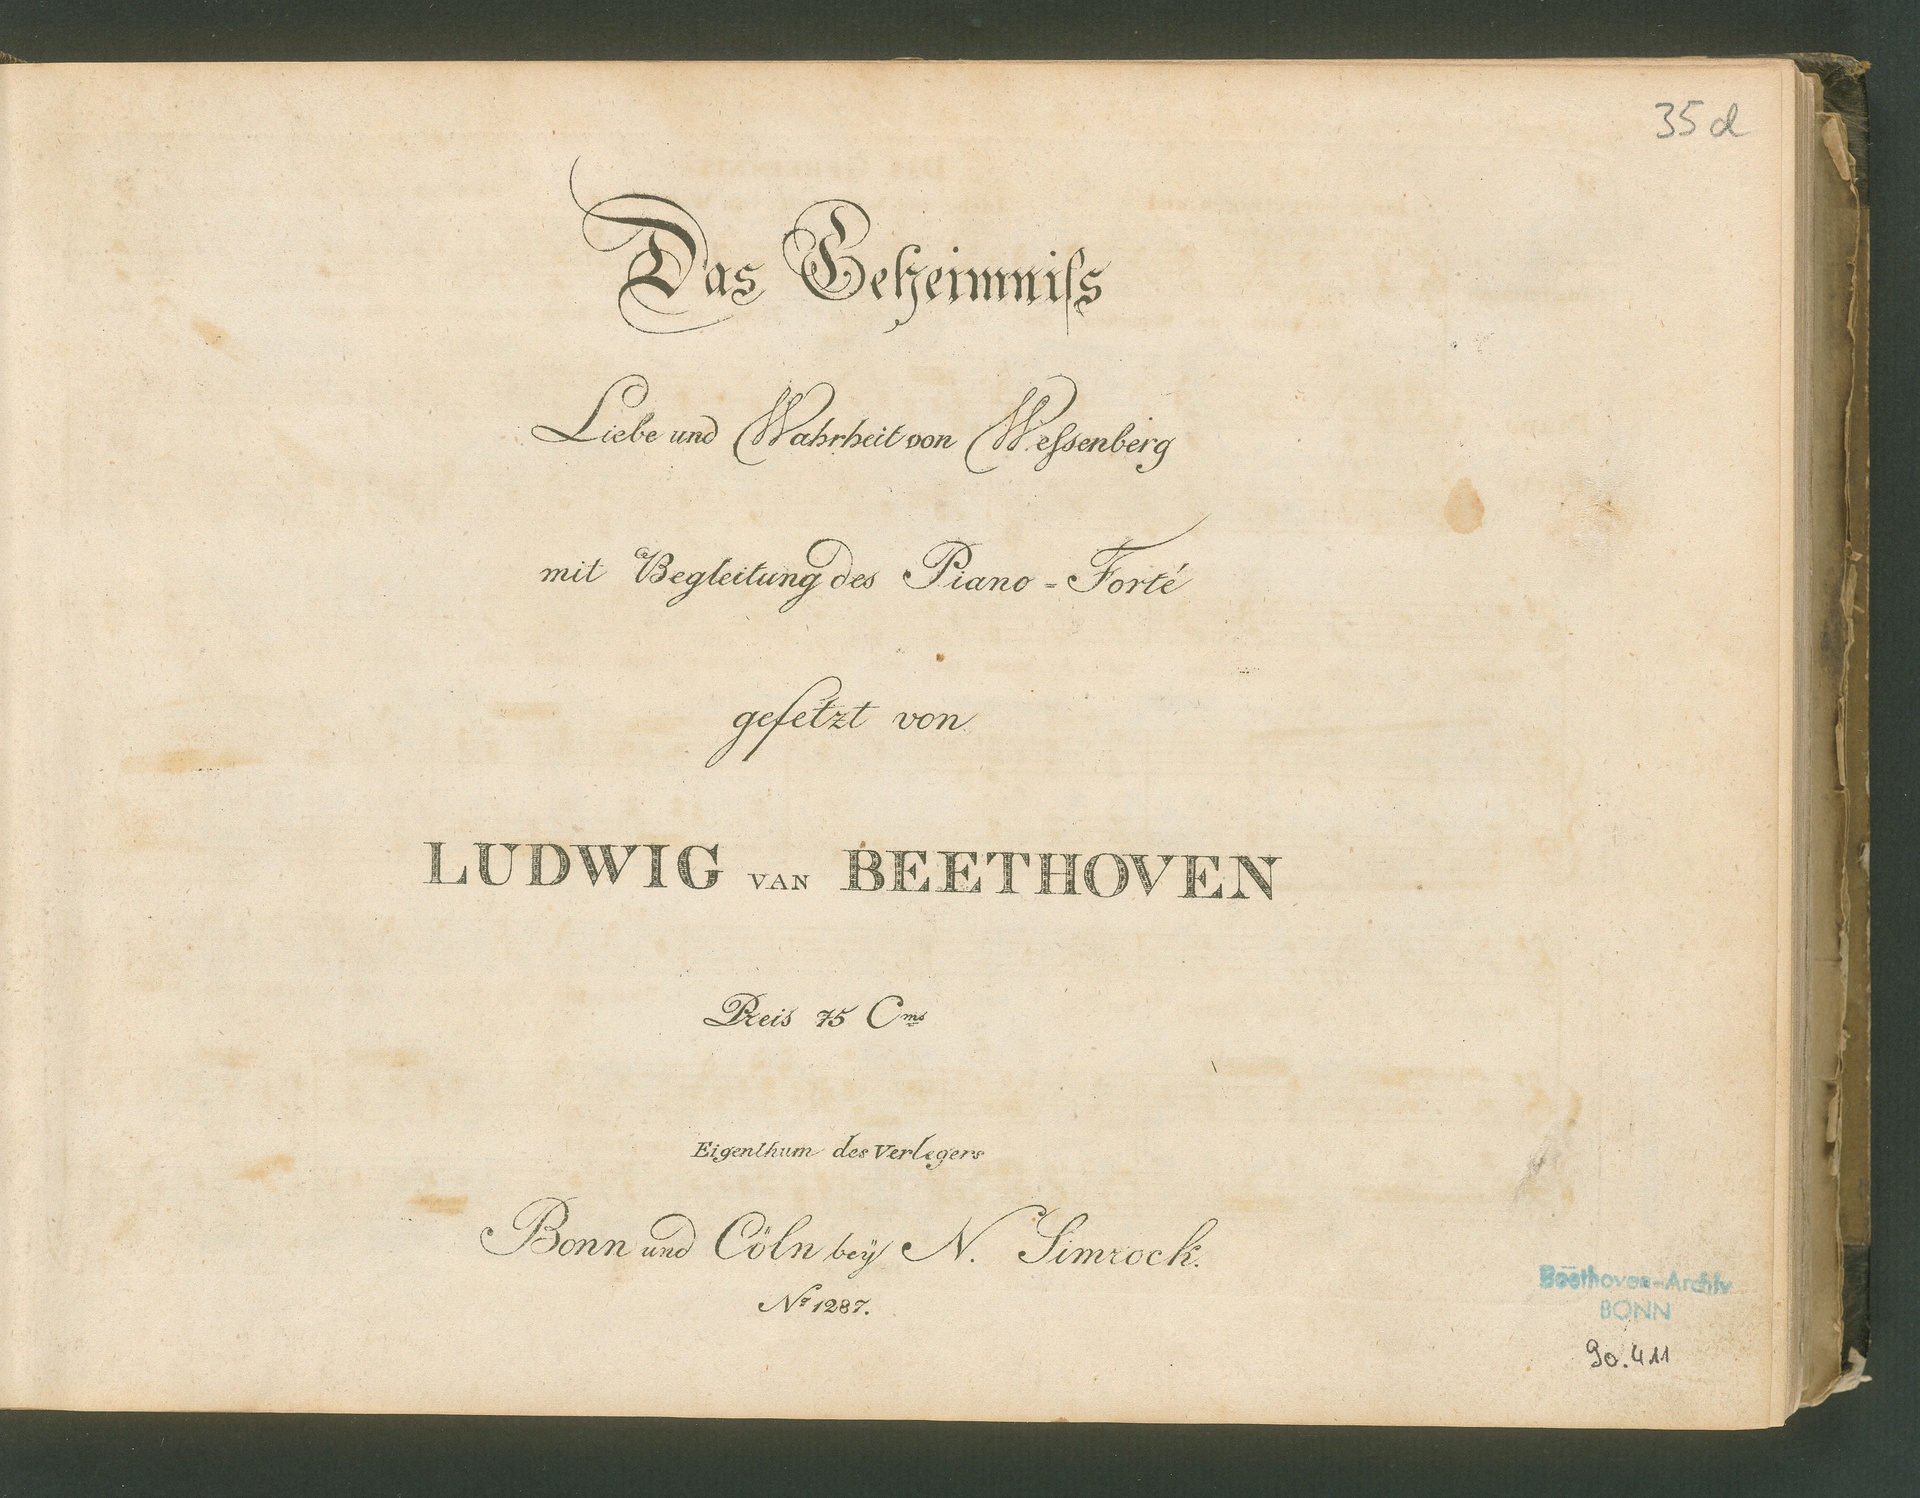 35 d
Das Geheimniſs
Liebe und Wahrheit von Weſsenberg
mit Begleitung des Piano = Forté
geſetzt von
LUDWIG VAN BEETHOVEN
Preis 75 Cms
Eigenthum des Verlegers
Bonn und Cöln beÿ N. Simrock.
No 1287.
Beethoven-Archiv
BONN
90.411